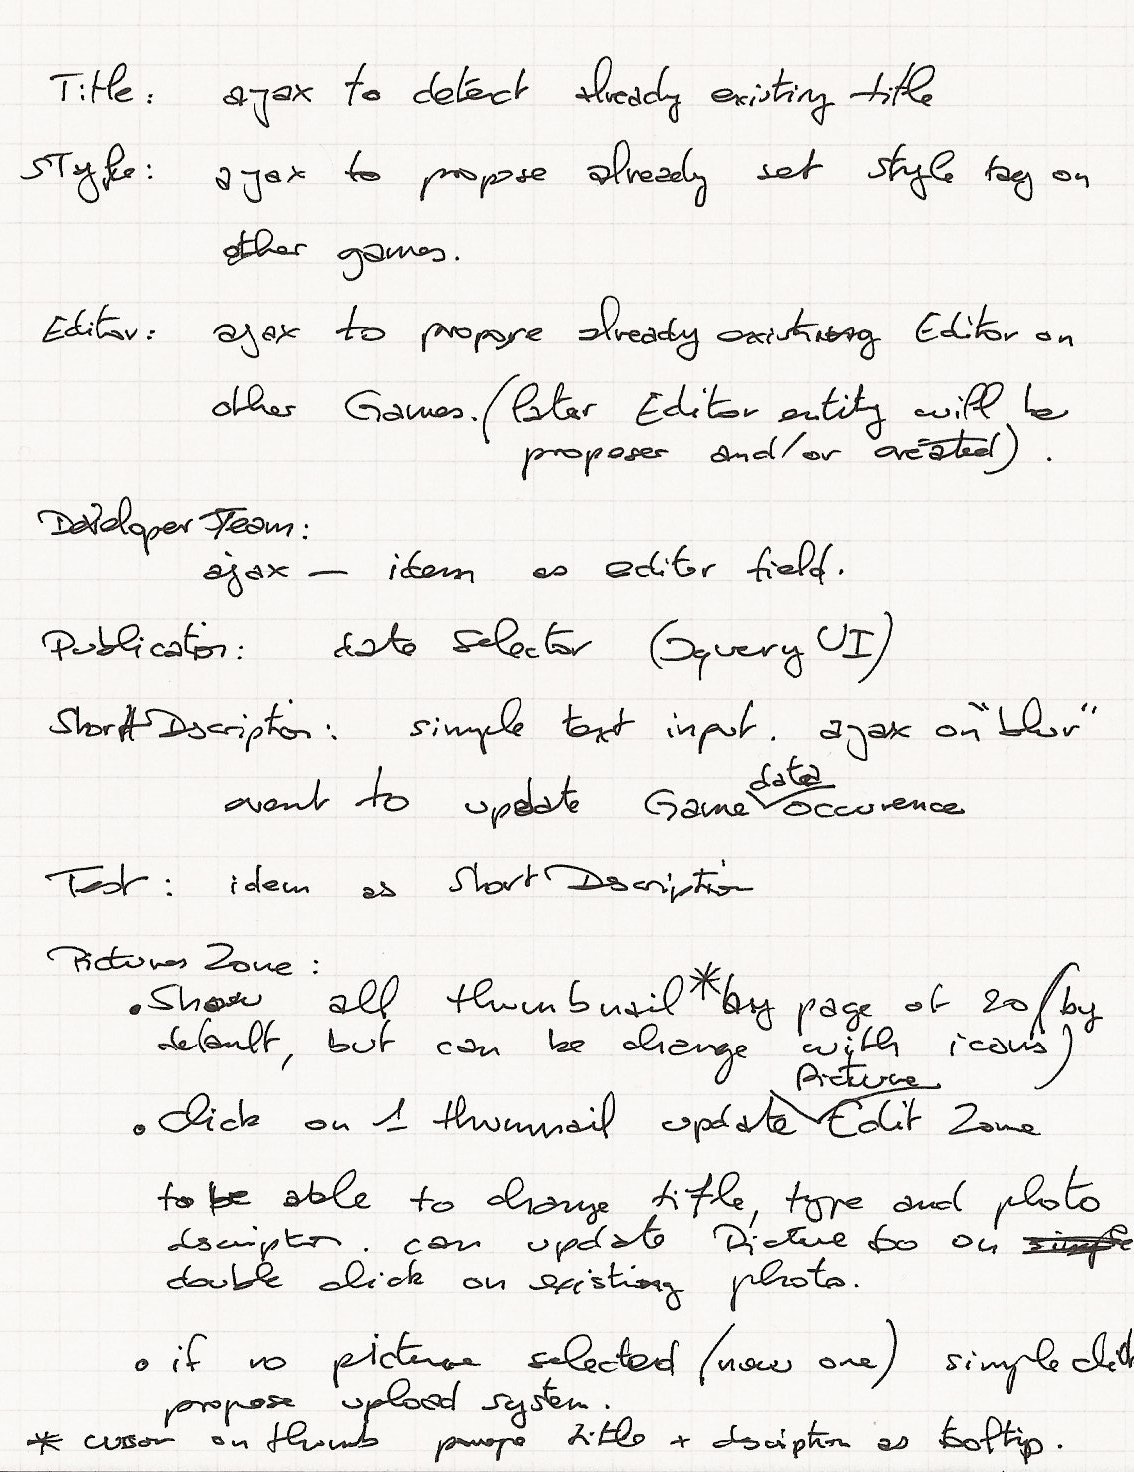 Title: ajax to detect already existing title
Style: ajax to propose already set style tag on
other games.
Editor: ajax to propose already existing Editor on
other Games. (later Editor entity will be
proposer and/or created).
Developer Team:
ajax — idem as editor field.
Publication: date selector (Jquery UI)
Short Dscription: simple text input. ajax on "blur"
data
event to update Game occurence
Text: idem as Short Dscription
Pictures Zone:
• Show all thumbnail * by page of 20 (by
default, but can be change with icons)
Picture
• Click on 1 thumnail update Edit Zone
to be able to change title, type and photo
dscription. can update Picture too on simple
double click on existing photo.
• if no picture selected (new one) simple click
propose upload system.
* cursor on thumb title + dsciption as tooltip.